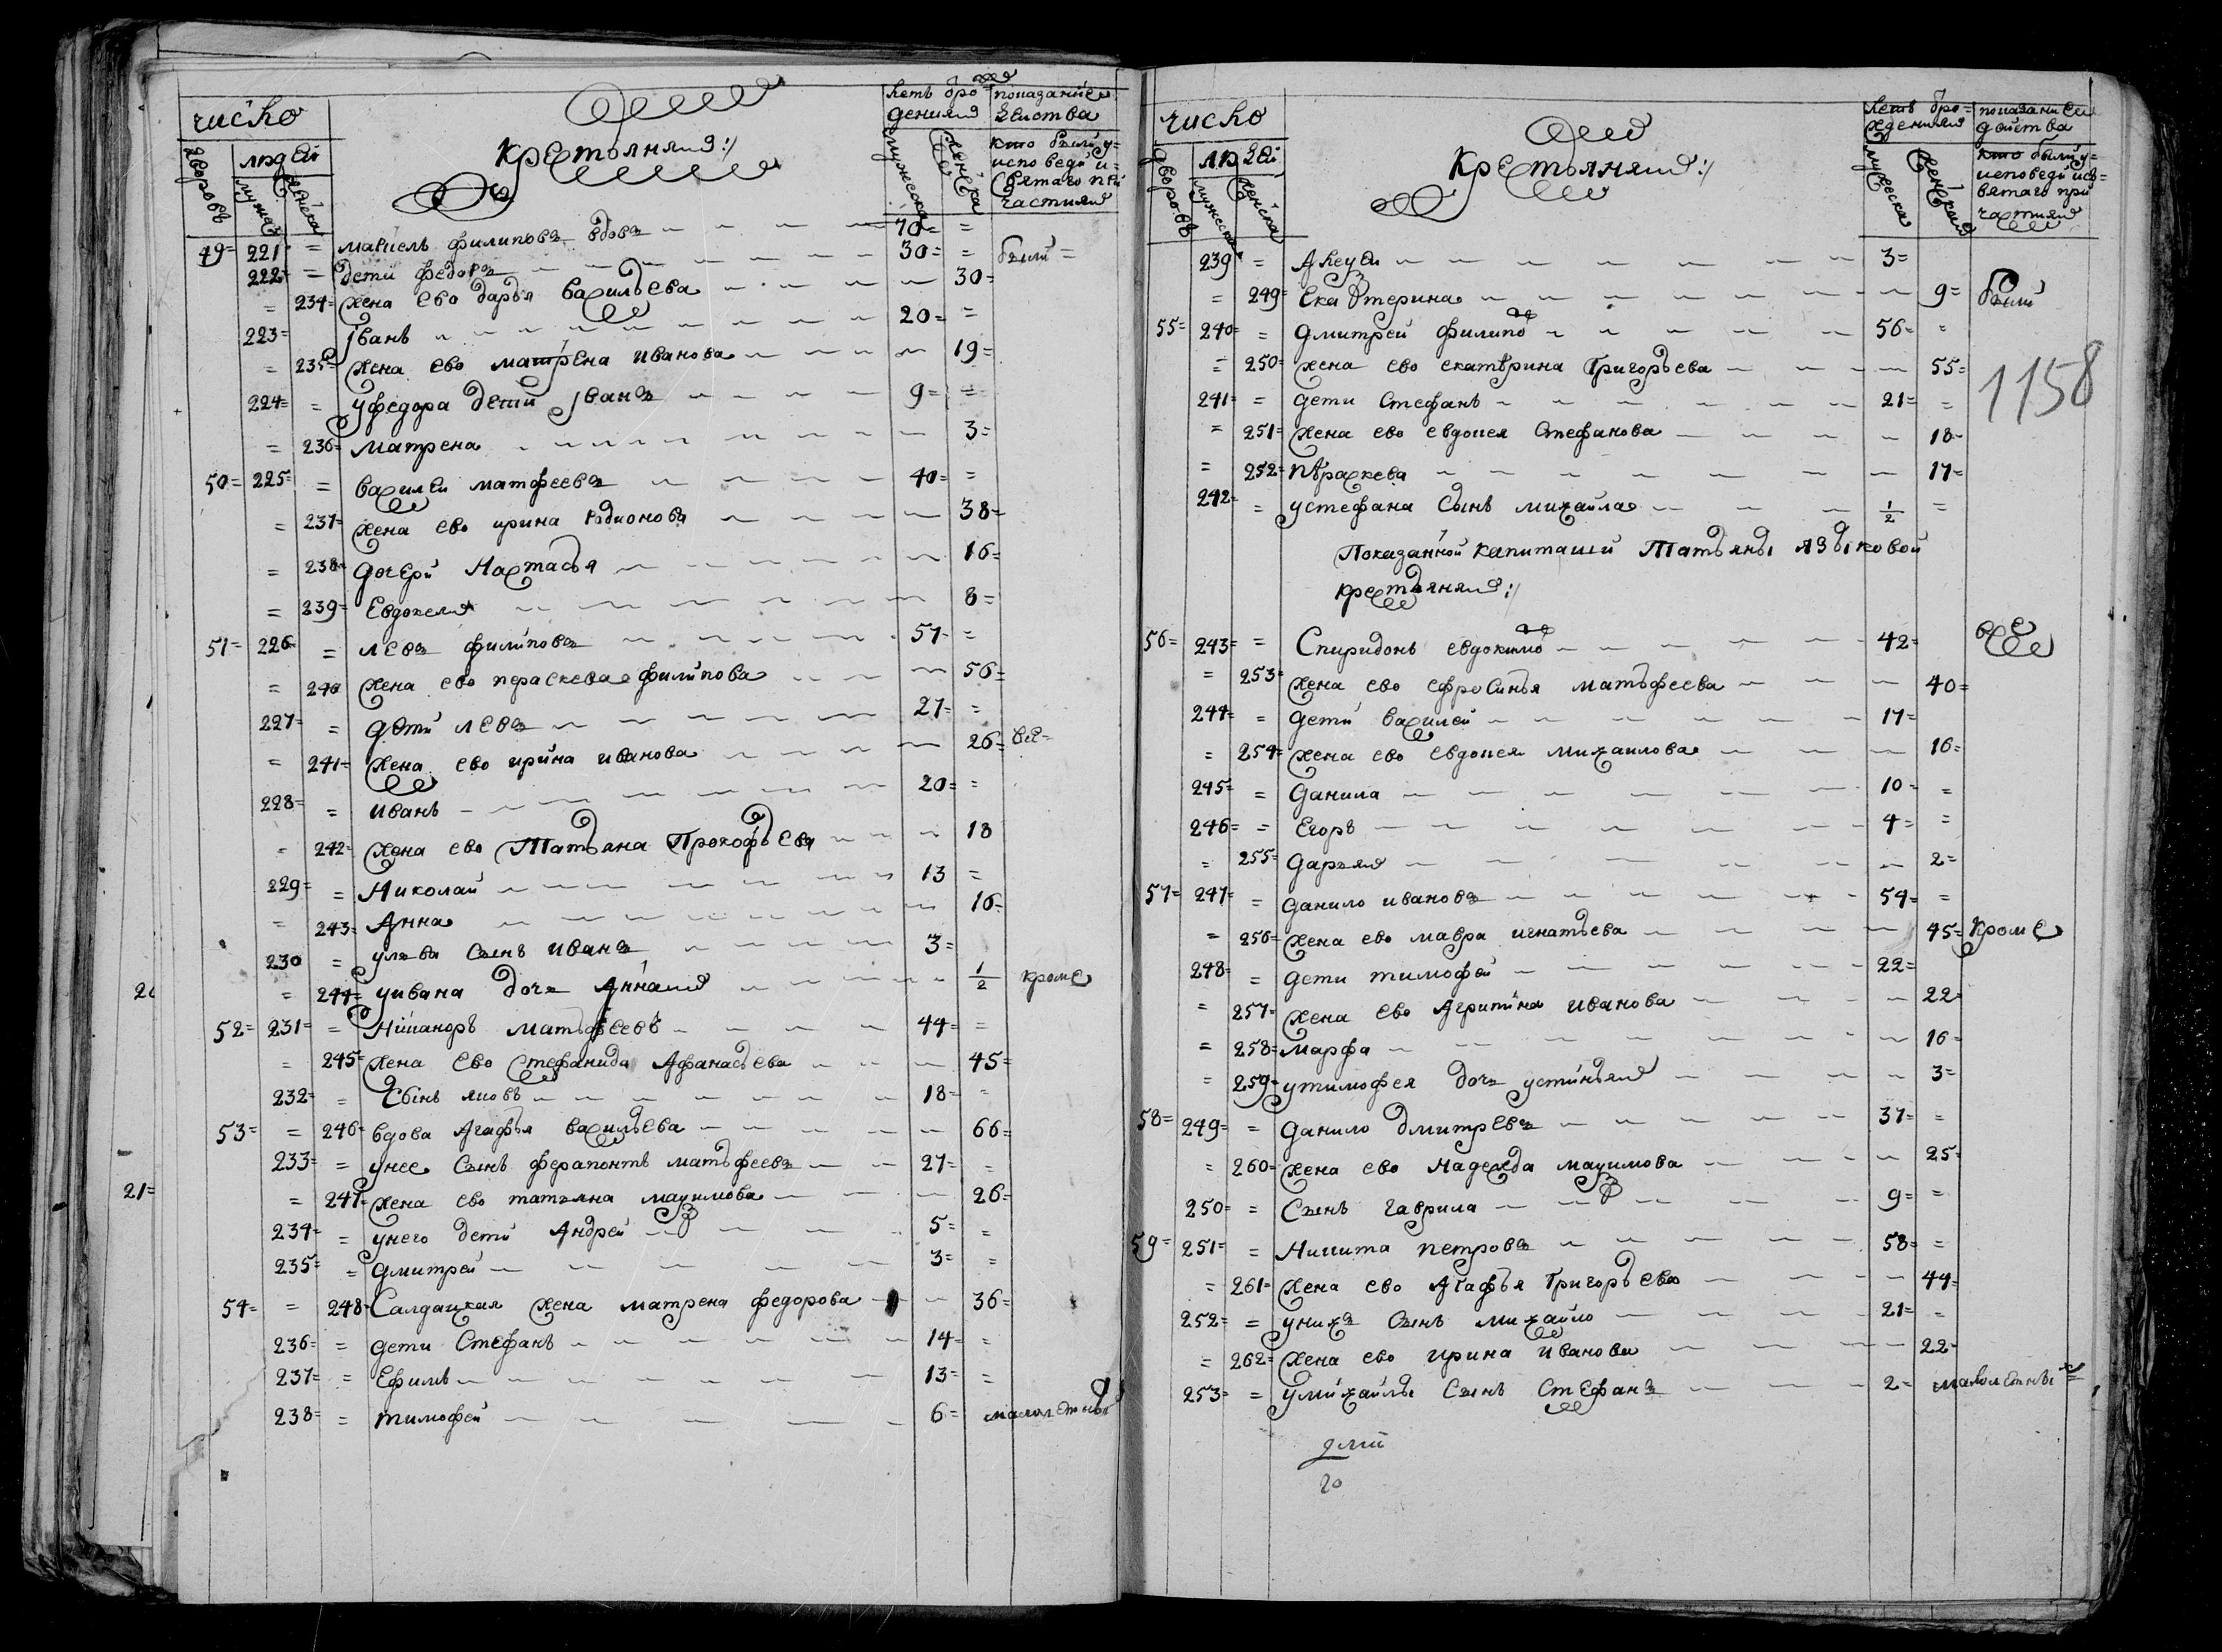 число
людей
дворовъ
мужеска
женска
Крестьяня:/
летъ оро
ждения
мужеска
женска
показание
действа
кто были у
исповеди и
святаго при
частия
49= 221 = Филиповъ вдовъ 70= =
222= = дети Федоръ 30= = были=
= 234= жена ево дарья васильева 30=
223= іванъ 20= =
= 235= жена ево матрена иванова 19=
224= = уфедора дети іванъ 9= =
= 236= матрена 3=
50= 225= = василеи матфеевъ 40= =
= 237= жена ево ирина родионова 38=
= 238= дочери Настасья 16=
= 239= Евдокея 8=
51= 226= = левъ филиповъ 57= =
= 240 жена ево параскева филипова 56=
227= = дети левъ 27= =
= 241= жена ево ирина иванова 26= все=
228= = иванъ 20= =
= 242= жена ево Татьяна Прокофьева 18
229= = Николай 13 =
= 243= Анна 16=
230 = ульва сынъ иванъ 3=
= 244= уивана дочь Анна 1/2 кроме
52= 231= = Никаноръ матьфеевъ 44= =
= 245= жена ево Стефанида Афанасьева 45=
232= = Сынъ яковъ 18= =
53= = 246= вдова Агафья васильева 66=
233= = унее сынъ ферапонтъ матьфеевъ 27= =
= 247= жена ево татьяна маѯимова 26=
234= = унего дети Андрей 5= =
235= = дмитрей 3= =
54= = 248 Салдацкая жена матрена федорова 36=
236= = дети Стефанъ 14= =
237= = Ефимъ 13= =
238= = тимофей 6= малолетны
число
людей
дворовъ
мужеска
женска
Крестьяня:/
летъ оро=
ждения
мужеска
женска
показание
действа
кто были у=
исповеди исъ=
вятаго при
частия
239 = Алеѯеи 3=
= 249= Екатерина 9= были
55= 240= = дмитрей филипо 56= =
= 250= жена ево екатерина Григорьева 55=
1158
241= = дети Стефанъ 21= =
= 251= жена ево евдокея Стефанова 18=
= 252= параскева 17=
242= = устефана сынъ михайла 1/2 =
Показанной капиташи Татьяны языковой
крестьяня:/
56= 243= = Спиридонъ евдокимо 42= все
= 253= жена ево ефросинья матьфеева 40=
244= = дети василей 17=
= 254= жена ево евдокея михаилова 16=
245= = данила 10= =
246= = Егоръ 4= =
= 255= дарья 2=
57= 247= = данило ивановъ 54= =
= 256= жена ево мавра игнатьева 45= кроме
248= = дети тимофей 22=
= 257= жена ево Агрипина иванова 22=
= 258= марфа 16=
= 259= утимофея дочь устинья 3=
58= 249= = данило дмитревъ 37= =
= 260= жена ево надежда маѯимова 25=
250= = Сынъ гаврила 9= =
59= 251= = Никита петровъ 58= =
= 261= жена ево Агафья Григорьева 44=
252= = унихъ сынъ михайло 21= =
= 262= жена ево ирина иванова 22=
253= = умихайлы сынъ Стефанъ 2= малолетны
20